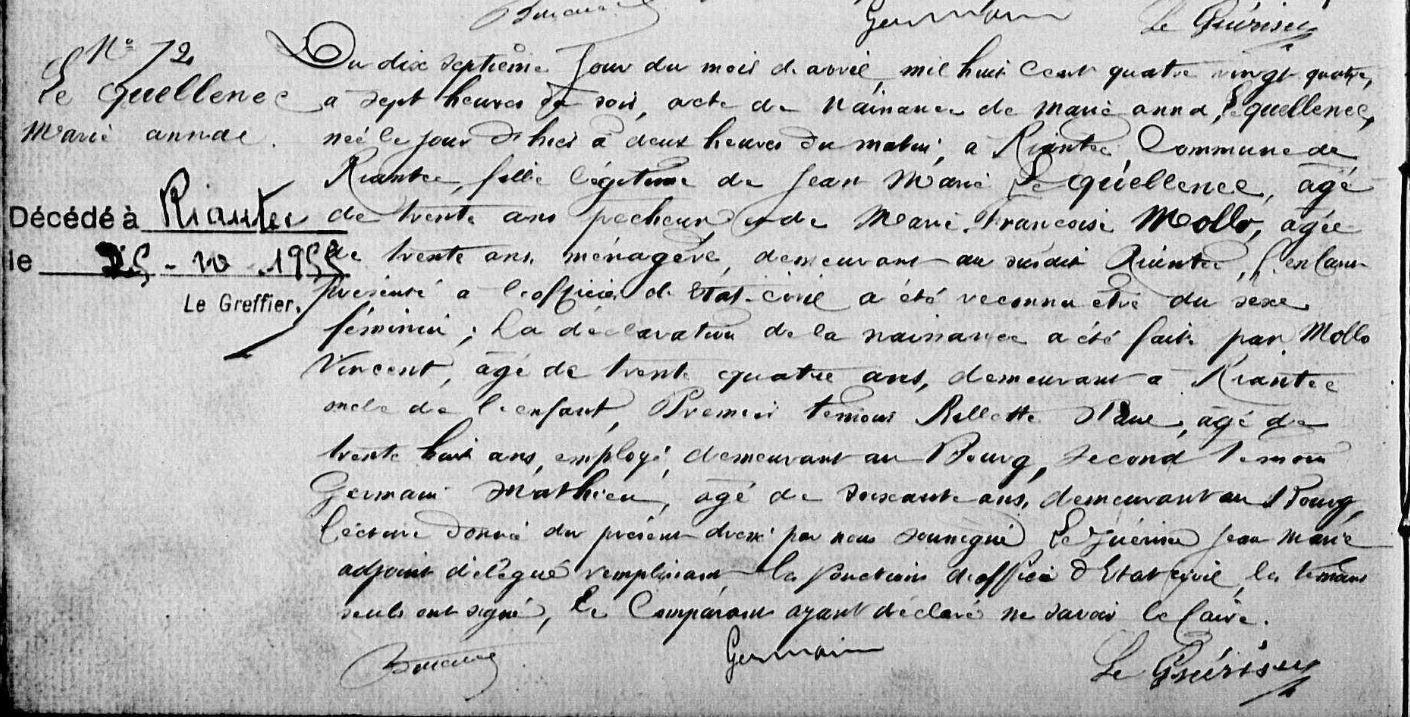 Germain
Le Guérisey
N° 72
Le Quellenec
Marie annae.
Décédé à Riantec
le 25 - 10 - 195
Le Greffier,
Du dix septième jour du mois d'avril, mil huit cent quatre vingt quatre,
a sept heures du soir, acte de naissance de Marie anna, Le quellenec,
née le jour d'hier à deux heures du matin, a Riantec Commune de
Riantec, fille légitime de Jean Marie Le quéllenec, âgé
de trente ans pêcheur, et de Marie Françoise Mollo, agée
de trente ans, ménagère, demeurant au susdit Riantec, l'enfant
présenté a l'officier d'Etat-civil a été reconnu être du sexe
féminin; La déclaration de la naissance a été faite par Mollo
Vincent, âgé de trente quatre ans, demeurant à Riantec
oncle de l'enfant, Premier temoin âgé de
trente huit ans, employé, demeurant au Bourg, second temoin
Germain Mathieu, âgé de soixante ans, demeurant au Bourg,
Lecture donnée du présent dressé par nous soussigné Jean Marie
adjoint délégué remplissant les fonctions d'officier d'Etat civil, les temoins
seuls ont signé, le Comparant ayant déclaré ne savoir le faire.
Germain
Le Guérisey